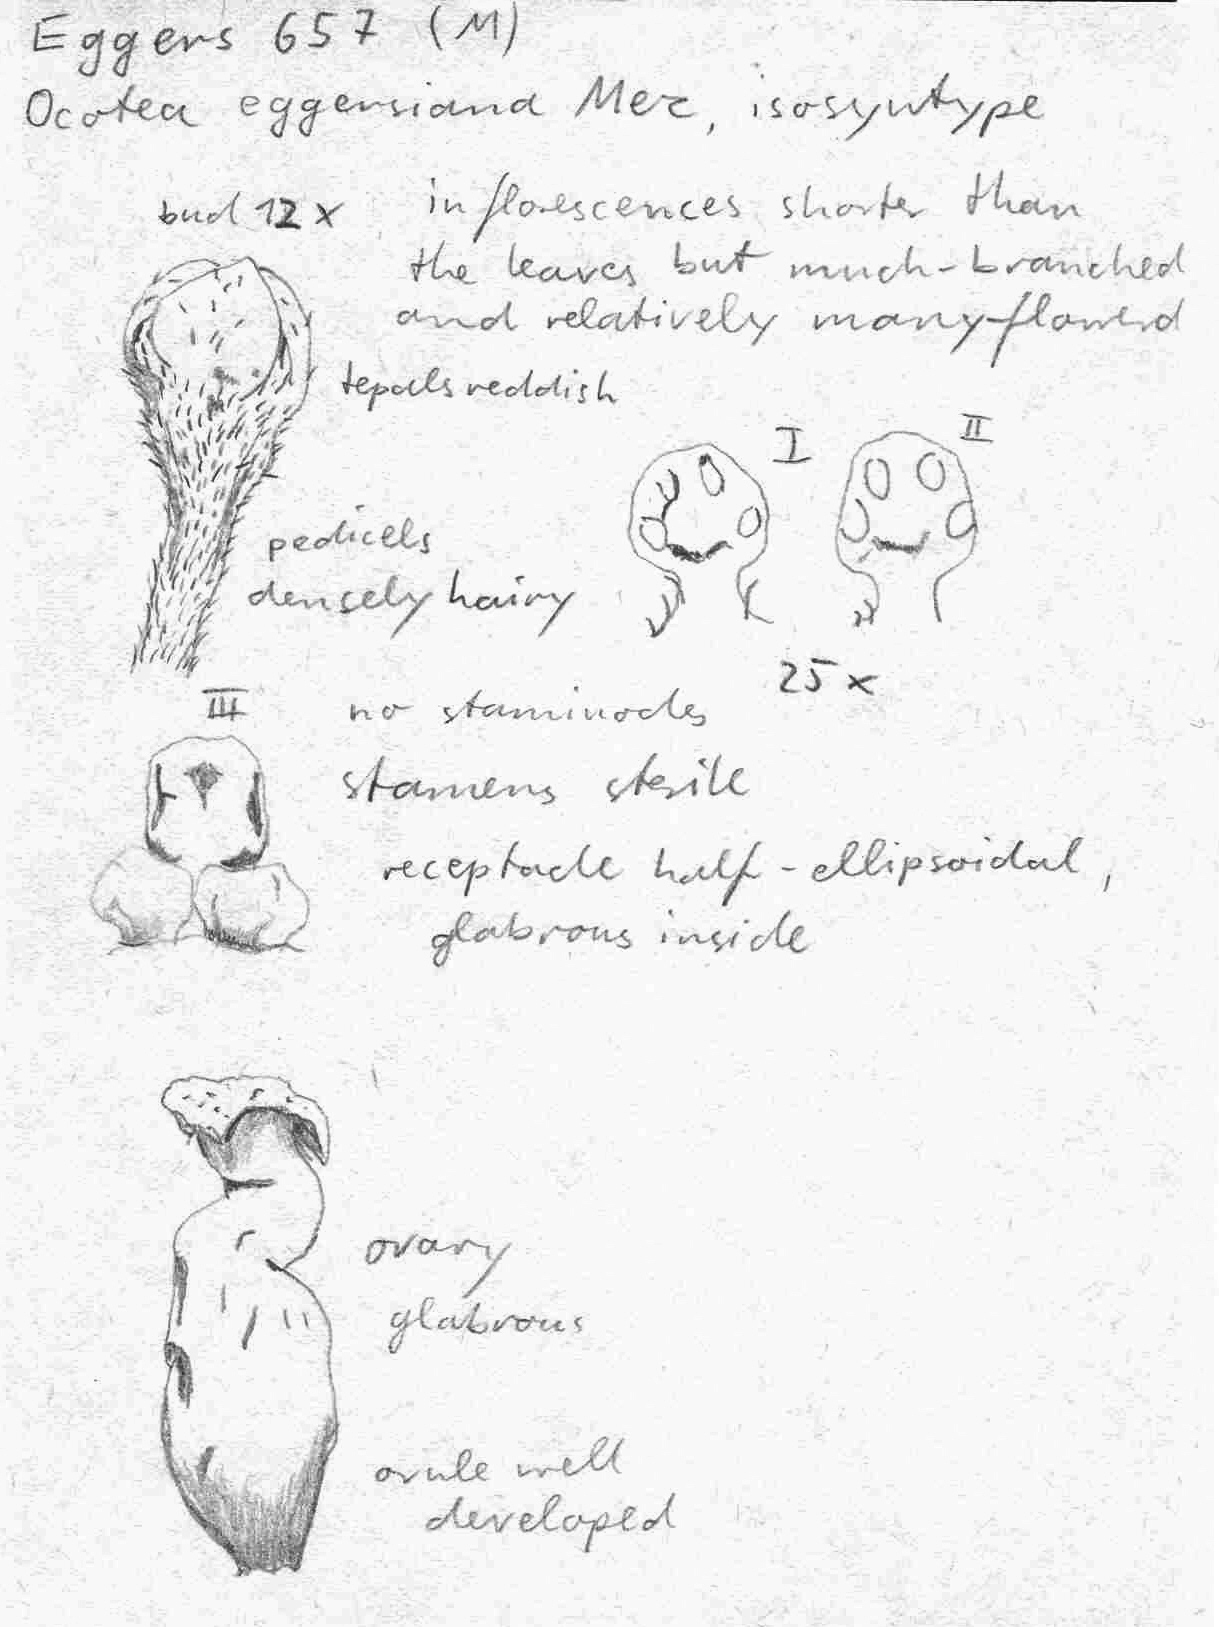 Eggers 657 (M)
Ocotea eggersiana Mez, isosyntype
bud 12 x
inflorescences shorter than
the leaves but much-branched
and relatively many-flowerd
tepals reddish
I
II
pedicels
densely hairy
25 x
III
no staminodes
stamens sterile
receptacle half-ellipsoidal,
glabrous inside
ovary
glabrous
ovule well
developed